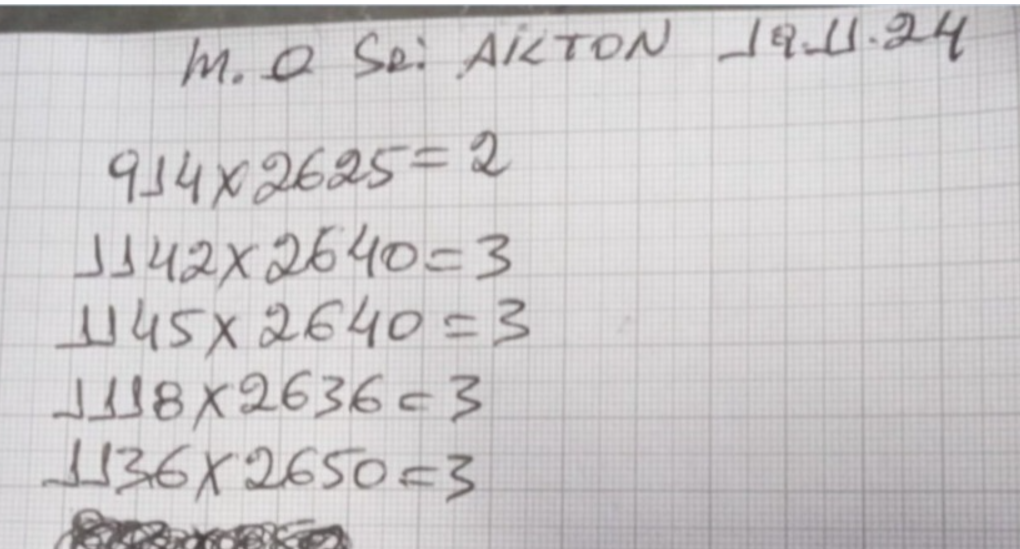 M. O SR: AILTON 19.11.24
914X2625=2
1142X2640=3
1145X2640=3
1118X2636=3
1136X2650=3